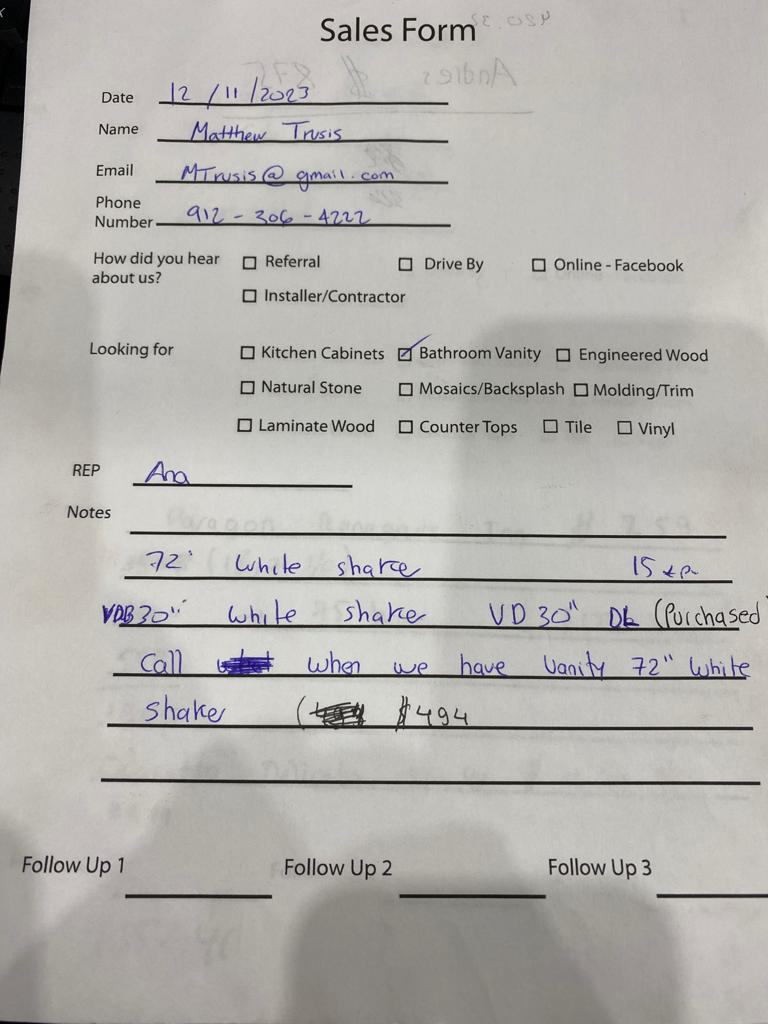 Sales Form
Date 12/11/2023
Name Matthew Trusis
Email MTrusis@gmail.com
Phone
Number 912-306-4222
How did you hear about us?
☐ Referral ☐ Drive By ☐ Online - Facebook
☐ Installer/Contractor
Looking for ☐ Kitchen Cabinets ☑ Bathroom Vanity ☐ Engineered Wood
☐ Natural Stone ☐ Mosaics/Backsplash ☐ Molding/Trim
☐ Laminate Wood ☐ Counter Tops ☐ Tile ☐ Vinyl
REP Ana
Notes
72" White shake 15
VDB30" White shake VD 30" (Purchased
Call when we have Vanity 72" White
Shaker ( $494
Follow Up 1 Follow Up 2 Follow Up 3